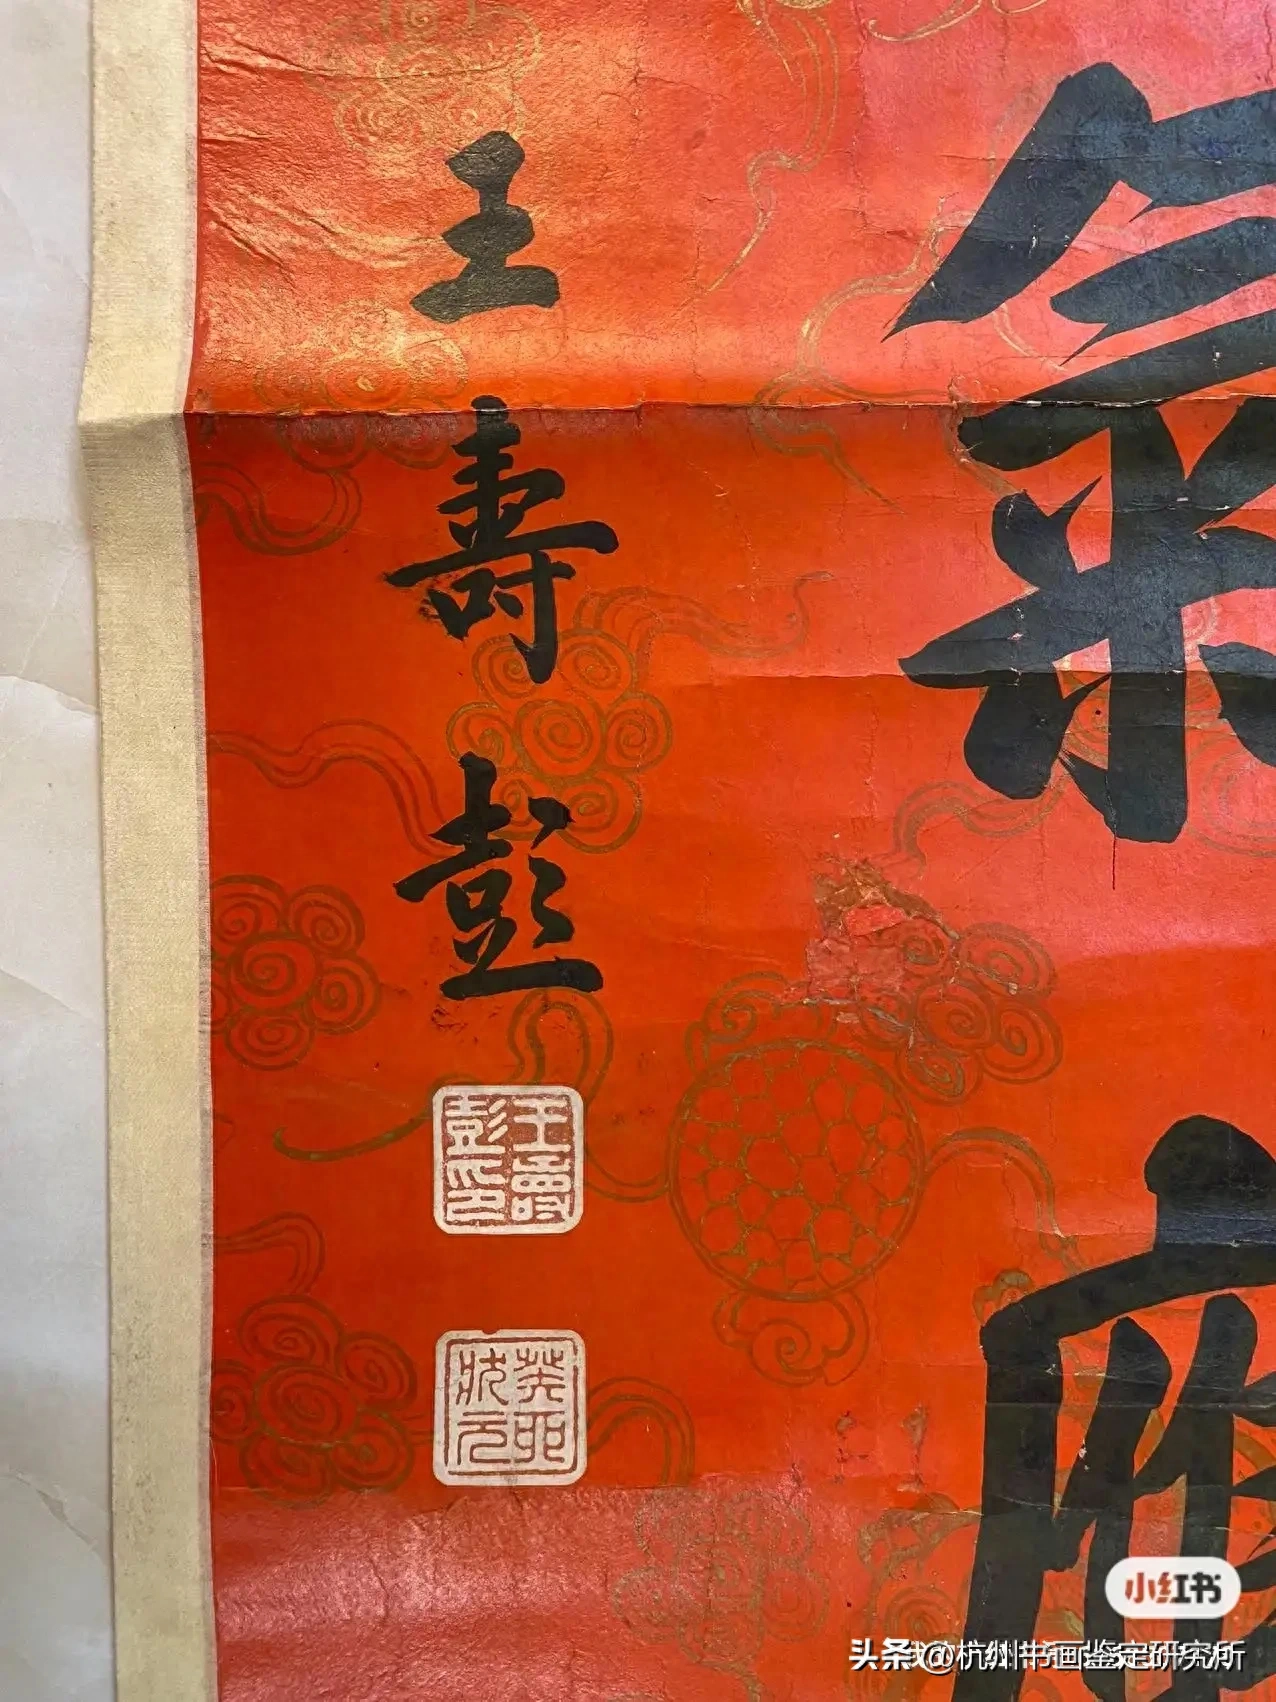 氣應
王壽彭
王壽彭印
癸卯狀元
小红书
头条@杭州书画鉴定研究所